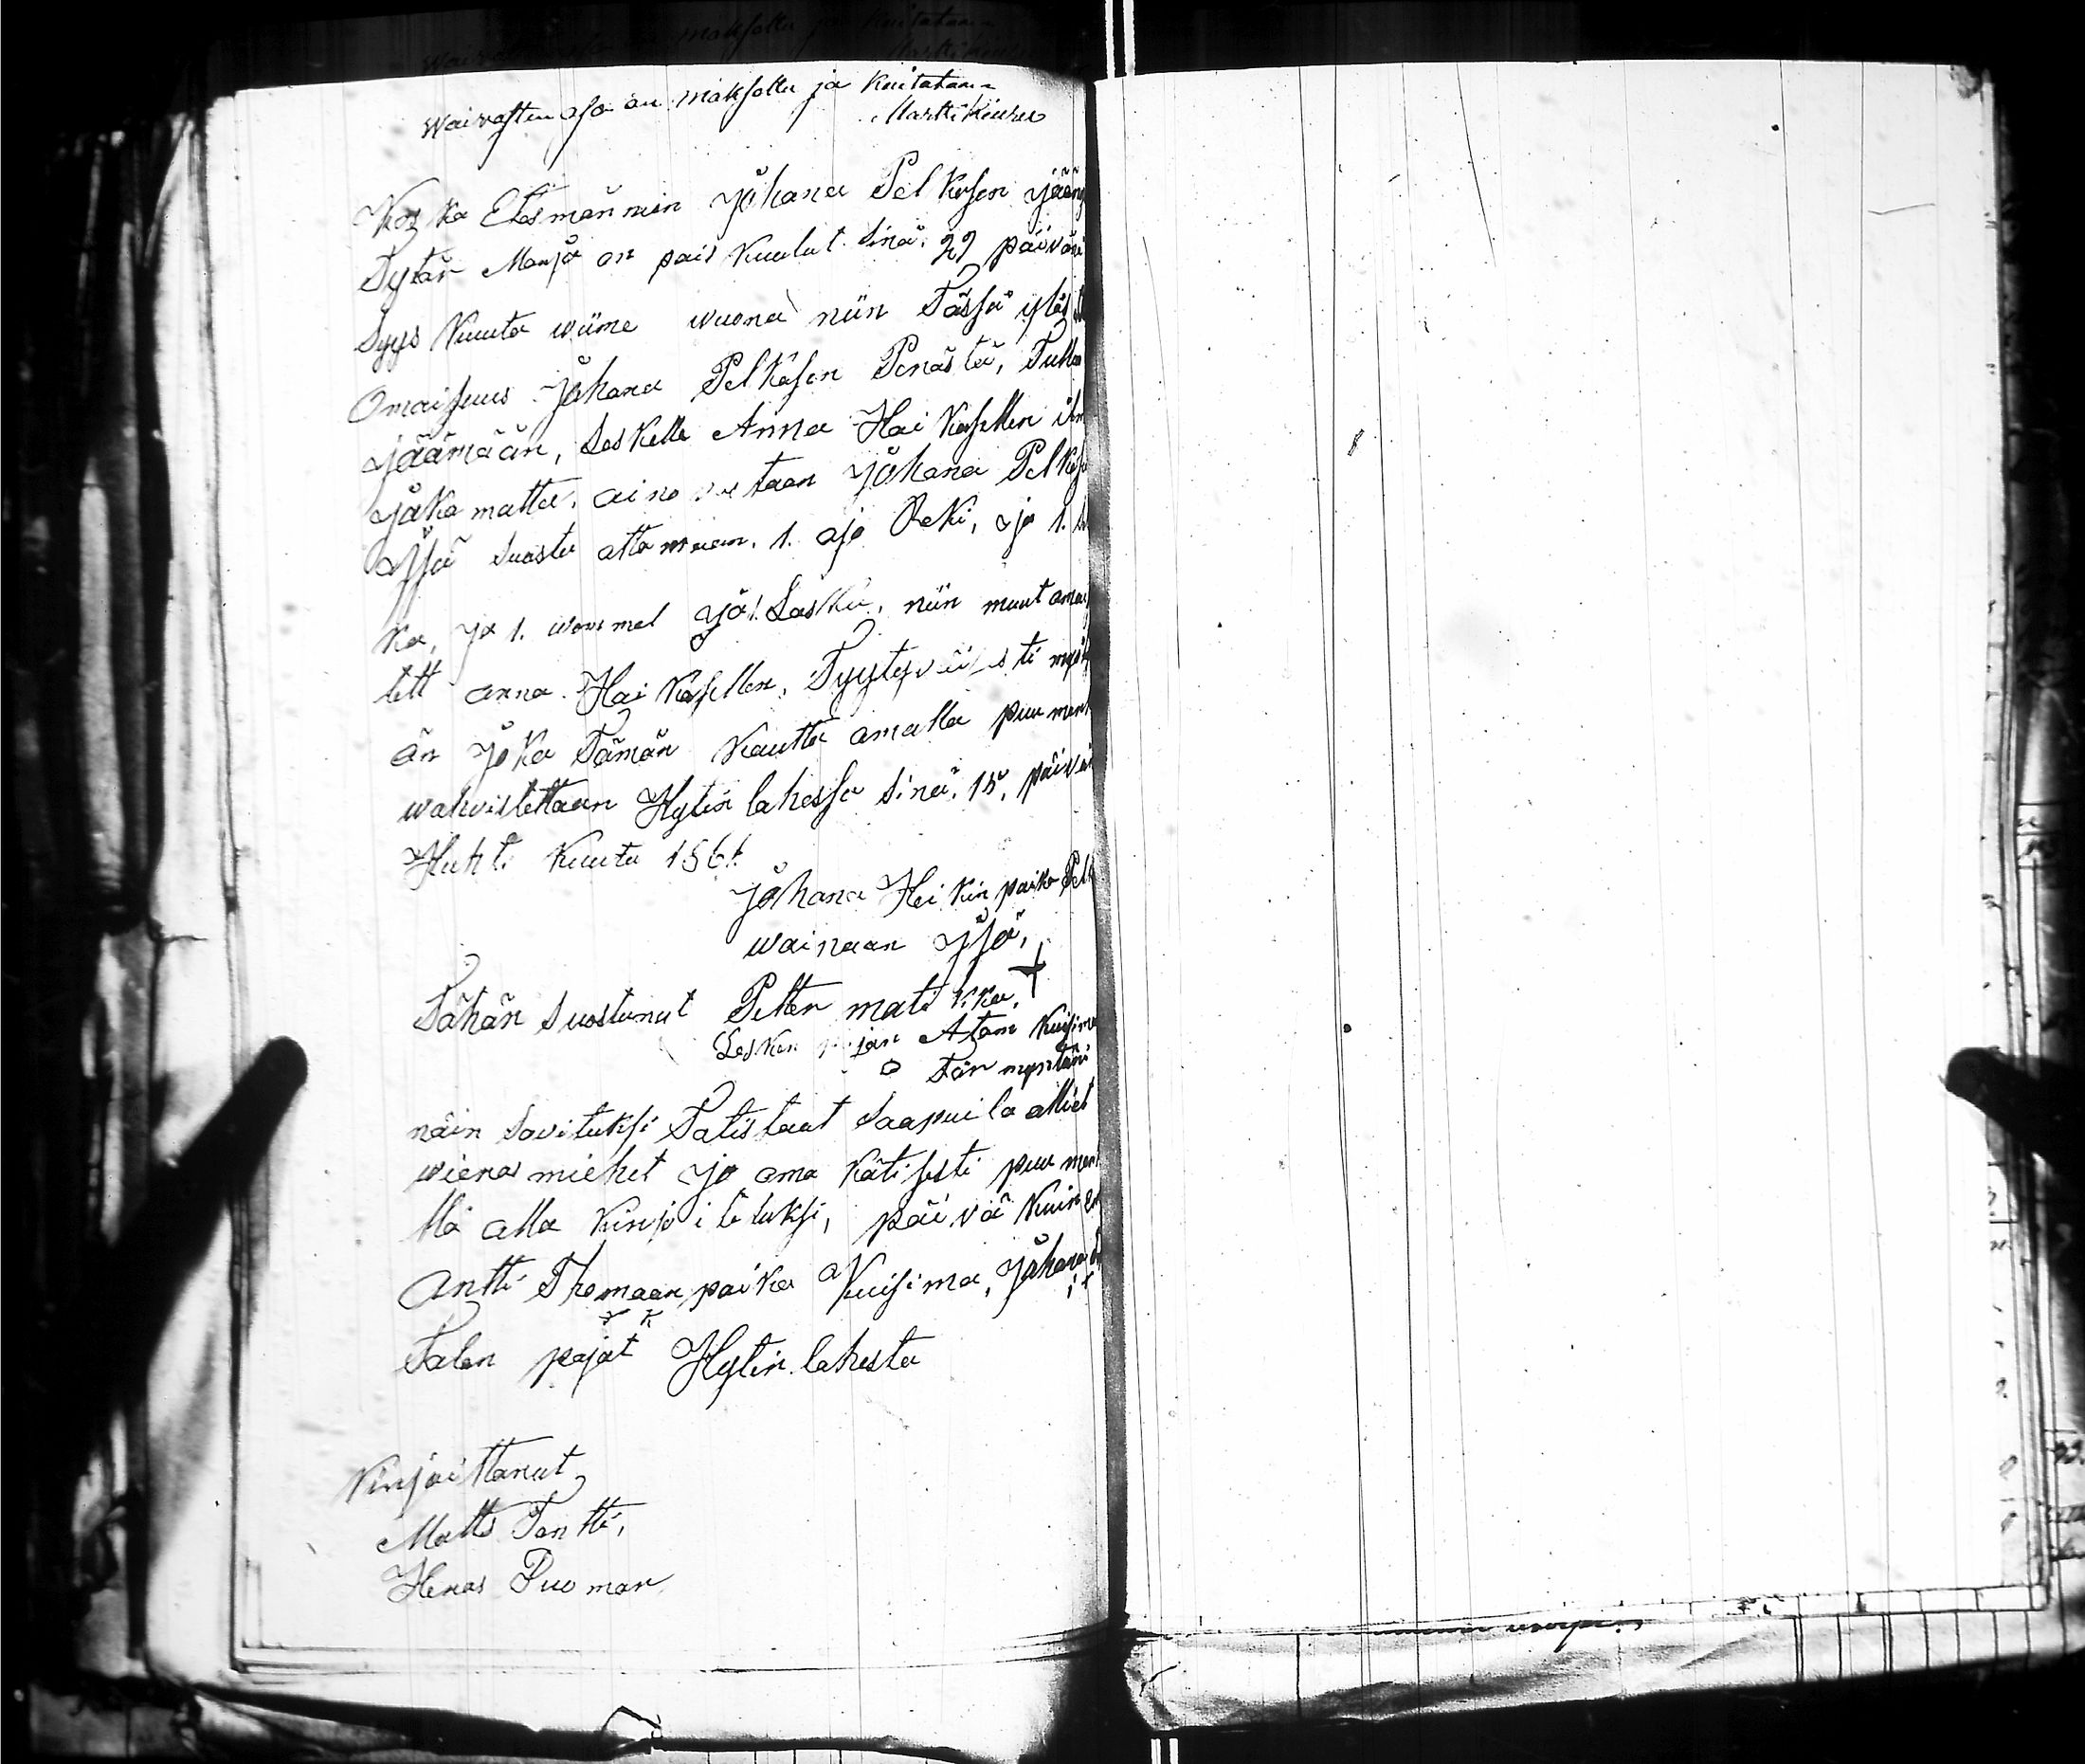 Waivasten osa on maksettu ja kuitataan
Martti Kiuru
Kos ka Etesmännin Johana Pelkosen jään
Tytär Marja on pois kuolut Sinä 29 päivänä
Syys kuuta wiime wuona niin Tässä ylös
Omaisuus Johana Pelkosen Penästä, Tulla
jäämään, Leskelle Anna Hai kosellen ilm
jaka matta, aino Johana Pelkos
Isä Suostu otta maan, 1. ajo Reki, ja 1.
ka, ja 1. wommel jal Lasku, niin muut omai
tett anna Hai kosellen, Tyytyväisesti myö
än joka Tämän kautta omalla puu merk
wahvistettaan Hytin lahessa Sinä 15, päivä
Huhti kuuta 1861.
Johana Hei kin poika Pelk
wainaan Isä,
Tähän Suostunut Petter mati kka,
Lesken pojan Atam kuisima
Tän myntäri
näin Sovituksi Totistaat Saapuila olliet
wieras miehet ja oma kätisesti puu merk
llä alla kirjoi tetuksi, päivä kuin
Antti Thomaan poika Kuisima, Johana
Talon pojat Hytin lahesta
Kirjoittanut
Matts Tantti,
Henas Puo man